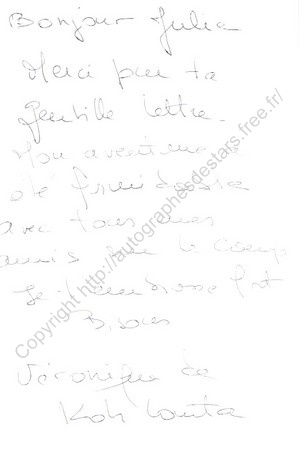 Bonjour Julia
Merci pour ta
gentille lettre.
Mon aventure a
été formidable
avec tous mes
amis sur le camp
Je t'embrasse fort
Bisous
Véronique de
Koh Lanta
Copyright http://autographesdestars.free.fr/